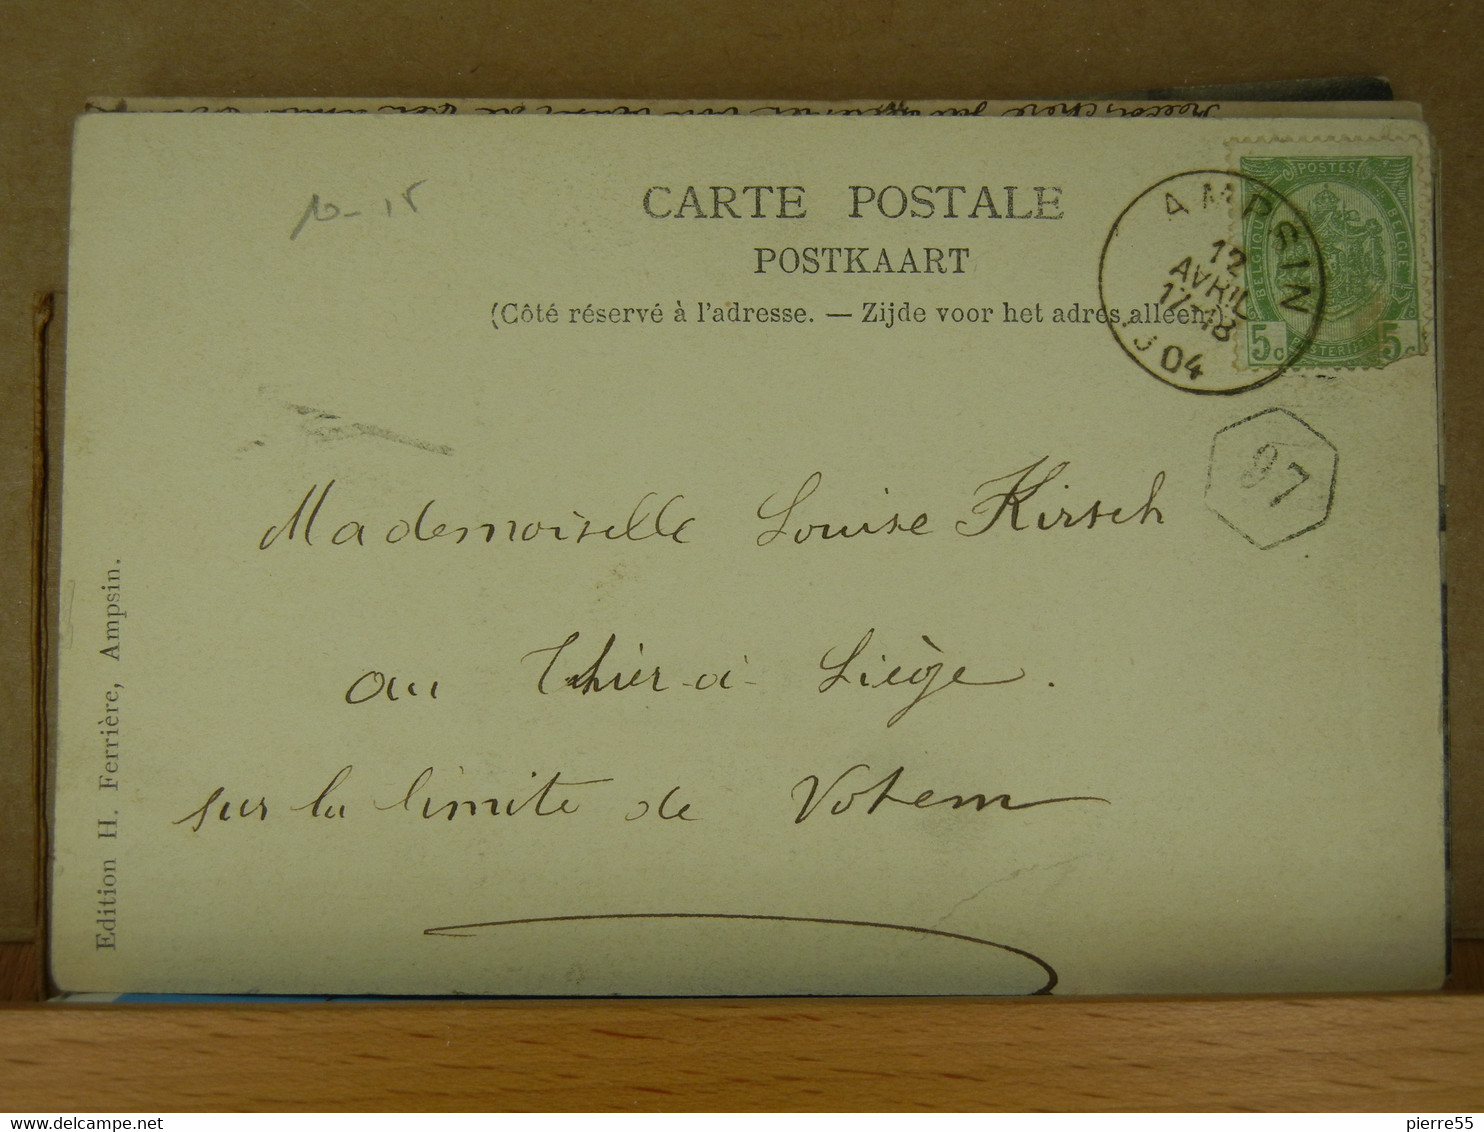 10-15
CARTE POSTALE
POSTKAART
(Côté réservé à l'adresse. — Zijde voor het adres alleen)
AMPSIN
12
AVRIL
17-18
1904
POSTES
BELGIQUE
BELGIE
POSTERIJEN
5c 5c
97
Mademoiselle Louise Kirsch
au Thier-à-Liège.
sur la limite de Votem
Edition H. Ferrière, Ampsin.
delcampe.net
pierre55